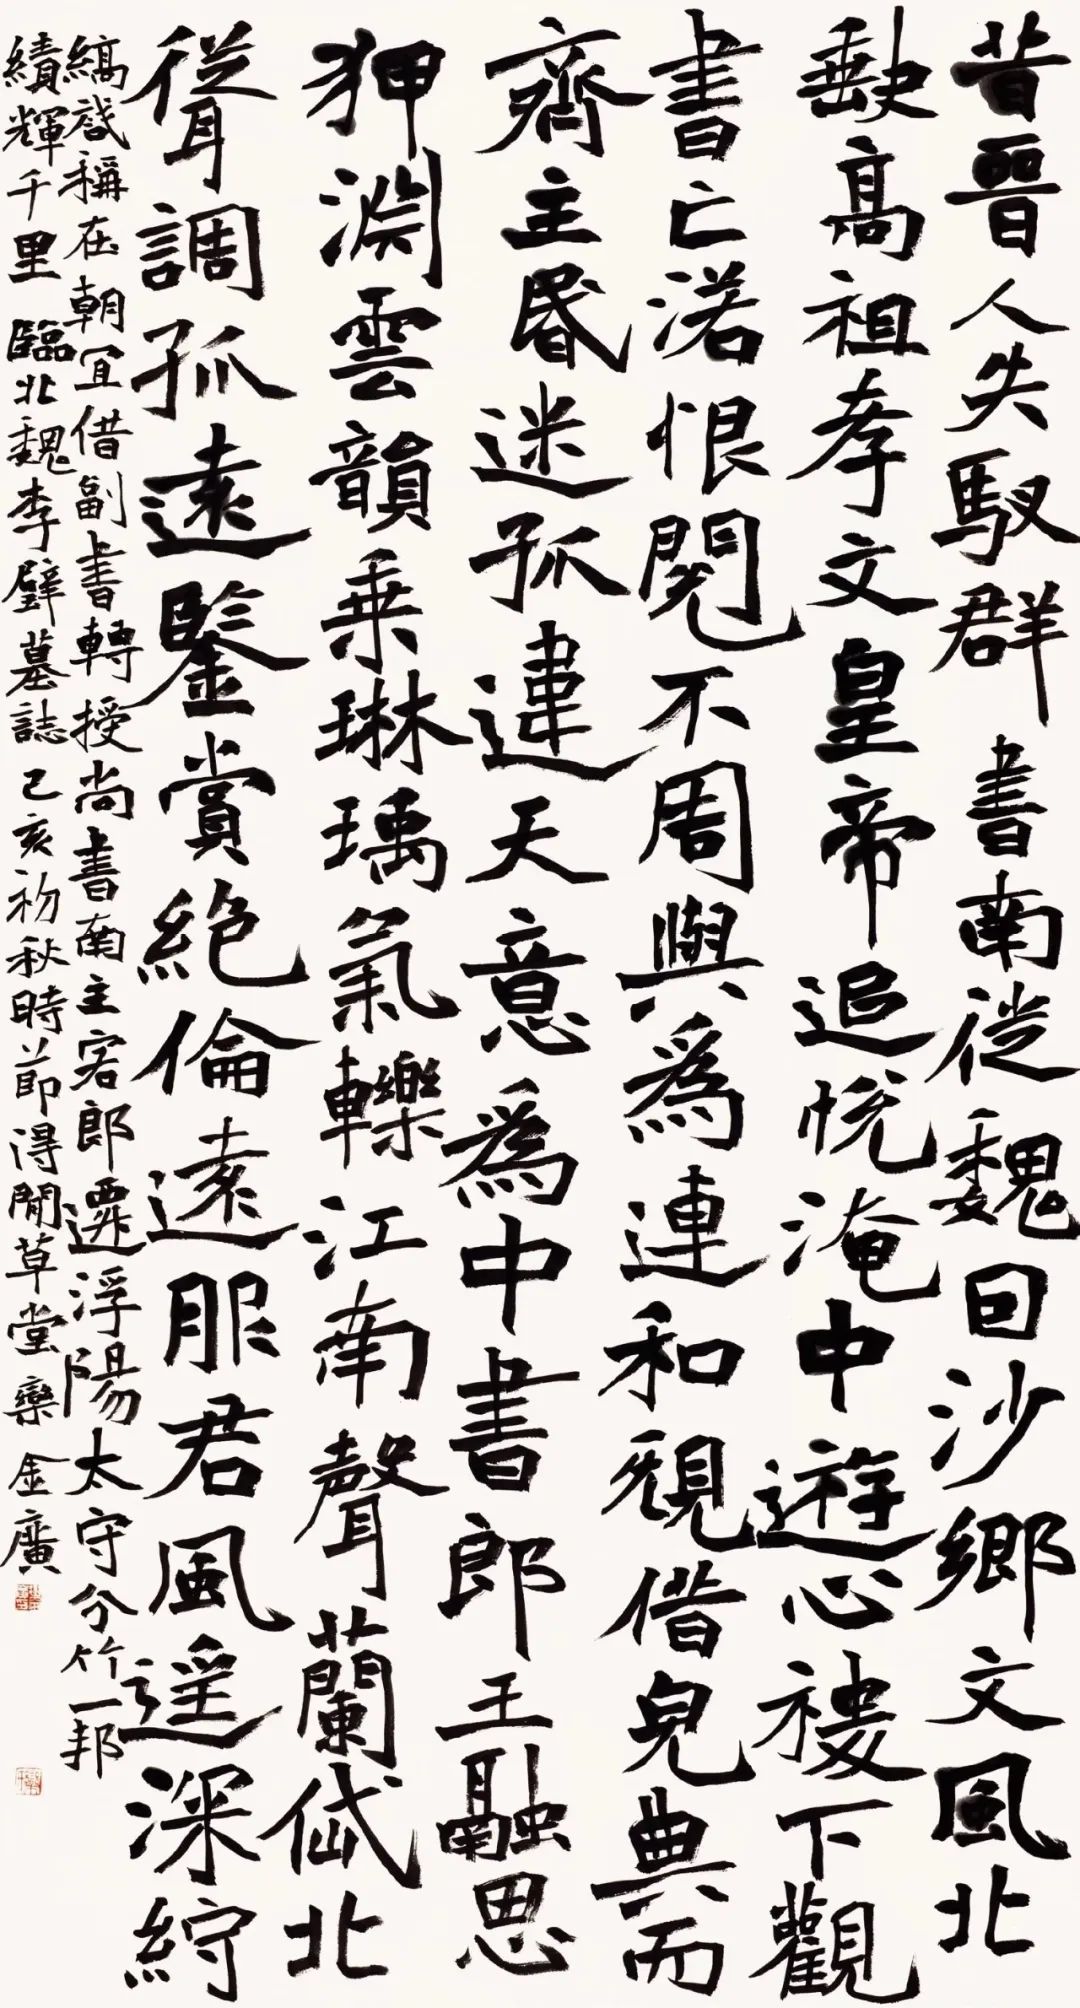 昔晉人失馭群書南徙魏因沙鄉文風北
缺高祖孝文皇帝追悅淹中遊心稷下觀
書亡落恨閱不周與為連和規借完典而
齊主昏迷孤違天意為中書郎王融思
狎淵雲韻乘琳瑀氣轢江南聲蘭岱北
聳調孤遠鑒賞絕倫遠服君風遥深紵
縞啟稱在朝宜借副書轉授尚書南主客郎遷浮陽太守分竹一邦
績輝千里 臨北魏李璧墓誌 己亥初秋時節得閒草堂 欒金廣